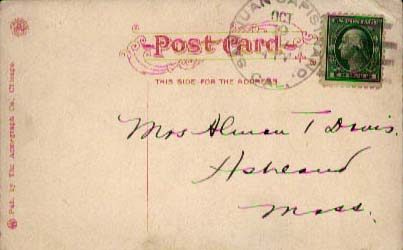 Post Card
THIS SIDE FOR THE ADDRESS
SAN JUAN CAPISTRANO, CAL.
OCT
Mrs Alman T Davis.
Ashland
Mass.
Pub. by The Acmegraph Co., Chicago.